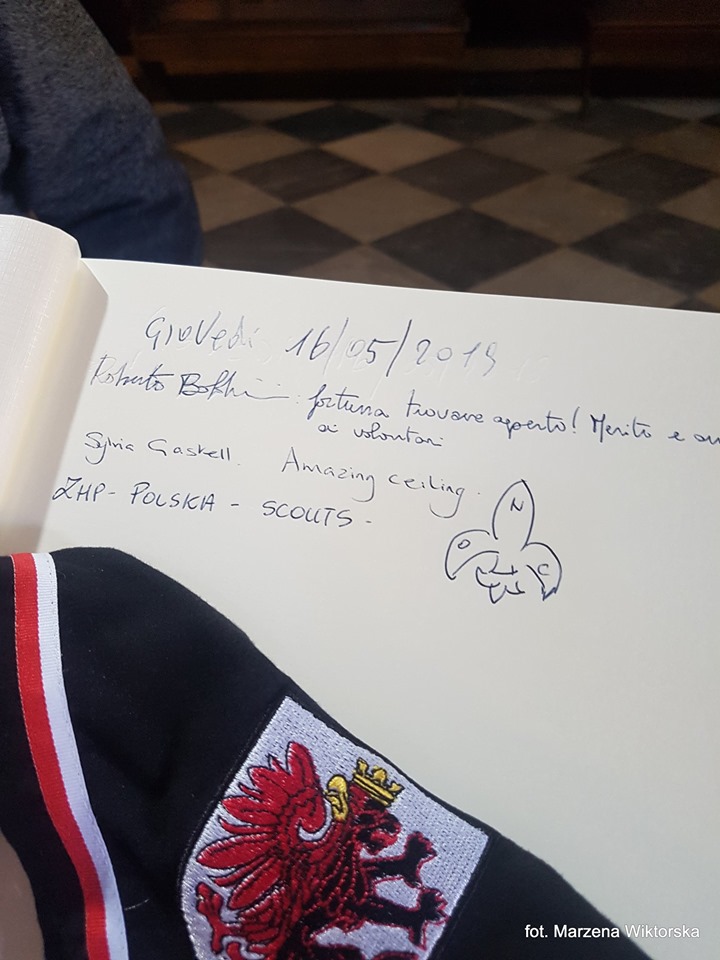 Giovedì 16/05/2019
Roberto : fortuna trovare aperto! Merito e
ai volontari
Sylvia Gaskell. Amazing ceiling.
ZHP - POLSKA - SCOUTS -
N
O C
fot. Marzena Wiktorska